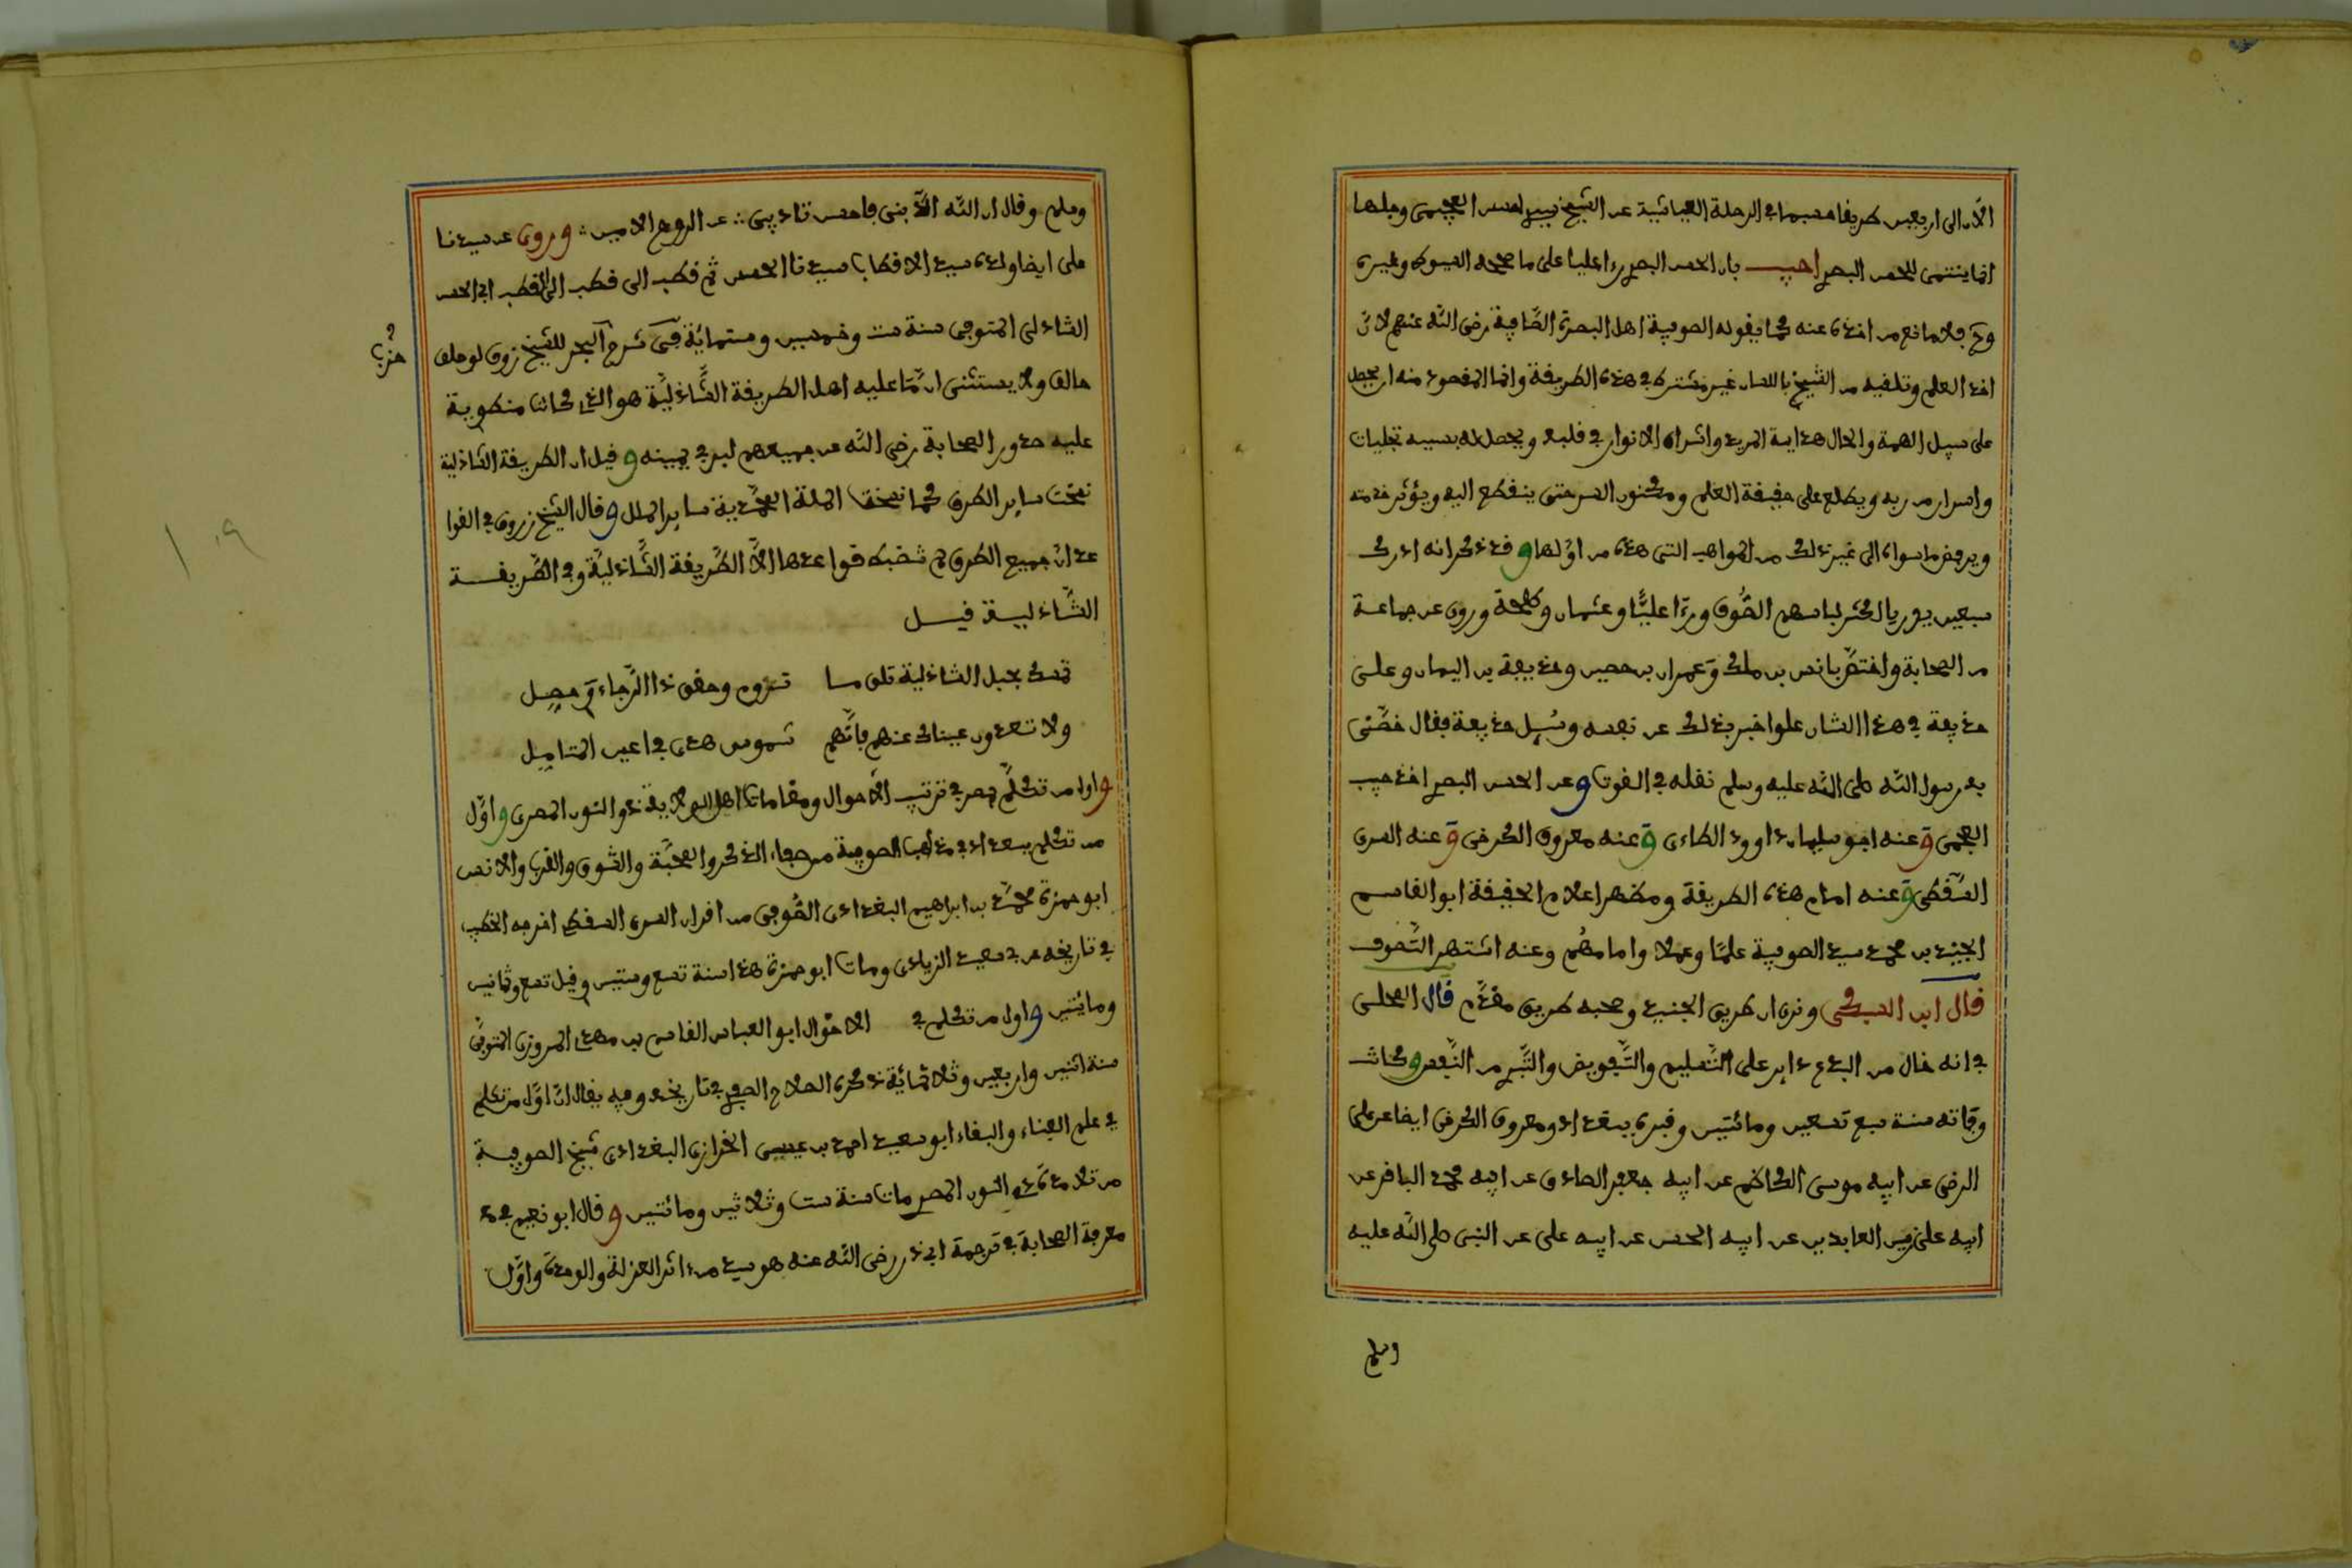 الآن الى اربعين طريقا حسبما في الرحلة العياشية عن الشيخ حسن العجيمي وجلها
انما ينتمى للحسن البصرى اجيب بان الحسن البصرى راى عليا على ما صححه السيوطى وغيره
وح فلا مانع من اخذه عنه كما يقوله الصوفية اهل البصرة الصافية رضى الله عنهم لان
اخذ العلم وتلقيه من الشيخ باللسان غير مشترط في هذه الطريقة وانما المقصود منه ان يحصل
على سبيل الهمة والحال هداية المريد واشراق الانوار في قلبه ويحصل له بسببه تجليات
واسرار من ربه ويطلع على حقيقة العلم ومكنون السر حتى ينقطع اليه ويؤثر خدمته
ويرفض ما سواه الى غير ذلك من المواهب التى هذه من اولها وقد ذكر انه ادرك
سبعين بدريا اكثر لباسهم الصوف وراى عليا وعثمان وطلحة وروى عن جماعة
من الصحابة واختص بانس بن ملك وعمران بن حصين وحذيفة بن اليمان وعلى
حذيفة في هذا الشان علوا خبر بذلك عن نفسه وسئل حذيفة فقال خصنى
به رسول الله صلى الله عليه وسلم نقله في القوت وعن الحسن البصرى اخذ حبيب
العجمى وعنه ابو سليمان داوود الطاءى وعنه معروف الكرخى وعنه السرى
السقطى وعنه امام هذه الطريقة ومظهر اعلام الحقيقة ابو القاسم
الجنيد بن محمد سيد الصوفية علما وعملا وامامهم وعنه اشتهر التصوف
قال ابن السبكى ونرى ان طريق الجنيد وصحبه طريق مقدم قال المحلى
في انه خال من البدع داير على التسليم والتفويض والتبرى من النفس وكانت
وفاته سنة سبع تسعين ومائتين وقبره ببغداد ومعروف الكرخى ايضا عن على
الرضى عن ابيه موسى الكاظم عن ابيه جعفر الصادق عن ابيه محمد الباقر عن
ابيه على زين العابدين عن ابيه الحسن عن ابيه على عن النبى صلى الله عليه
وسلم
وسلم وقال ان الله ادبنى فاحسن تاديبى عن الروح الامين وروى عن سيدنا
على ايضا ولده سيد الاقطاب سيدنا الحسن ثم قطب الى قطب الى القطب ابى الحسن
الشاذلى المتوفى سنة ست وخمسين وستمائة في شرح البحر للشيخ زروق لو حلف
حزب
حالف ولا يستثنى ان ما عليه اهل الطريقة الشاذلية هو الذى كانت منطوية
عليه صدور الصحابة رضى الله عن جميعهم لبر في يمينه وقيل ان الطريقة الشاذلية
نسخت ساير الطرق كما نسخت الملة المحمدية ساير الملل وقال الشيخ زروق في القوا
عد ان جميع الطرق لم تضبط قواعدها الا الطريقة الشاذلية وفي الطريقة
الشاذلية قيل
تمسك بحبل الشاذلية تلق ما تروم وحقق ذا الرجاء وحصل
ولا تعدون عيناك عنهم فانهم شموس هدى في اعين المتامل
واول من تكلم بمصر في ترتيب الاحوال ومقامات اهل الولاية ذو النون المصرى واول
من تكلم ببغداد في مذاهب الصوفية من صفاء الذكر والمحبة والشوق والقرب والانس
ابو حمزة محمد بن ابراهيم البغدادى الصوفى من اقران السرى السقطى اخرجه الخطيب
في تاريخه عن ابى سعيد الزيادى ومات ابو حمزة هذا سنة تسع وستين وقيل تسع وثمانين
ومائتين واول من تكلم في الاحوال ابو العباس القاسم بن مهدى المروزى المتوفى
سنة اثنين واربعين وثلاثمائة ذكره الصلاح الصفدى في تاريخه وفيه يقال ان اول من تكلم
في علم الفناء والبقاء ابو سعيد احمد بن عيسى الخرازى البغدادى شيخ الصوفية
من تلامذة ذو النون المصرى مات سنة ست وثلاثين ومائتين وقال ابو نعيم في
معرفة الصحابة في ترجمة ابى ذر رضى الله عنه هو سيد من اثر العزلة والوحدة واول
١٠٩